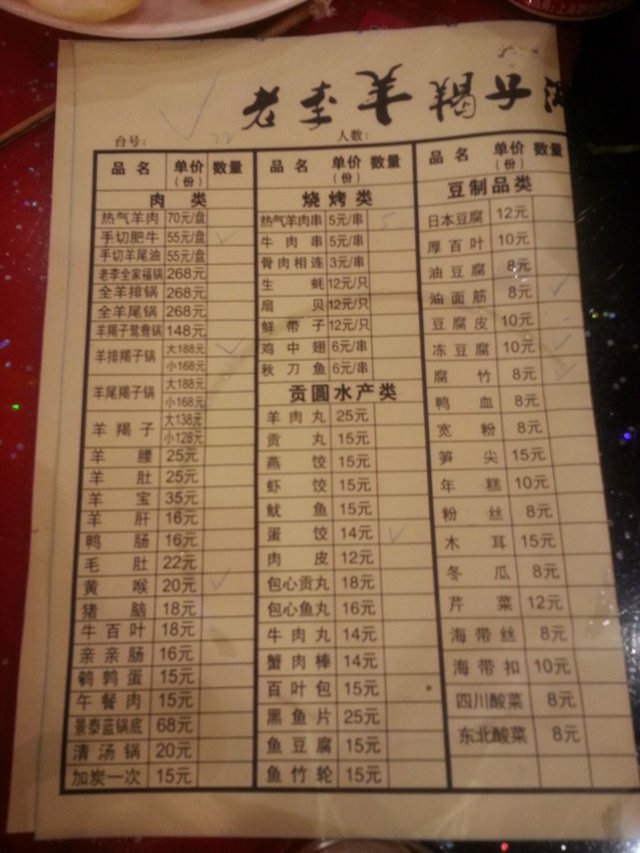 老李羊羯子
台号:
人数:
品名 单价(份) 数量
肉类
热气羊肉 70元/盘
手切肥牛 55元/盘
手切羊尾油 55元/盘
老李全家福锅 268元
全羊排锅 268元
全羊尾锅 268元
羊羯子鸳鸯锅 148元
羊排羯子锅 大188元 小168元
羊尾羯子锅 大188元 小168元
羊羯子 大138元 小128元
羊腰 25元
羊肚 25元
羊宝 35元
羊肝 16元
鸭肠 16元
毛肚 22元
黄喉 20元
猪脑 18元
牛百叶 18元
亲亲肠 16元
鹌鹑蛋 15元
午餐肉 15元
景泰蓝锅底 68元
清汤锅 20元
加炭一次 15元
品名 单价(份) 数量
烧烤类
热气羊肉串 5元/串
牛肉串 5元/串
骨肉相连 3元/串
生蚝 12元/只
扇贝 12元/只
鲜带子 12元/只
鸡中翅 6元/串
秋刀鱼 6元/串
贡圆水产类
羊肉丸 25元
贡丸 15元
燕饺 15元
虾饺 15元
鱿鱼 15元
蛋饺 14元
肉皮 12元
包心贡丸 18元
包心鱼丸 16元
牛肉丸 14元
蟹肉棒 14元
百叶包 15元
黑鱼片 25元
鱼豆腐 15元
鱼竹轮 15元
品名 单价(份) 数量
豆制品类
日本豆腐 12元
厚百叶 10元
油豆腐 8元
油面筋 8元
豆腐皮 10元
冻豆腐 10元
腐竹 8元
鸭血 8元
宽粉 8元
笋尖 15元
年糕 10元
粉丝 8元
木耳 15元
冬瓜 8元
芹菜 12元
海带丝 8元
海带扣 10元
四川酸菜 8元
东北酸菜 8元